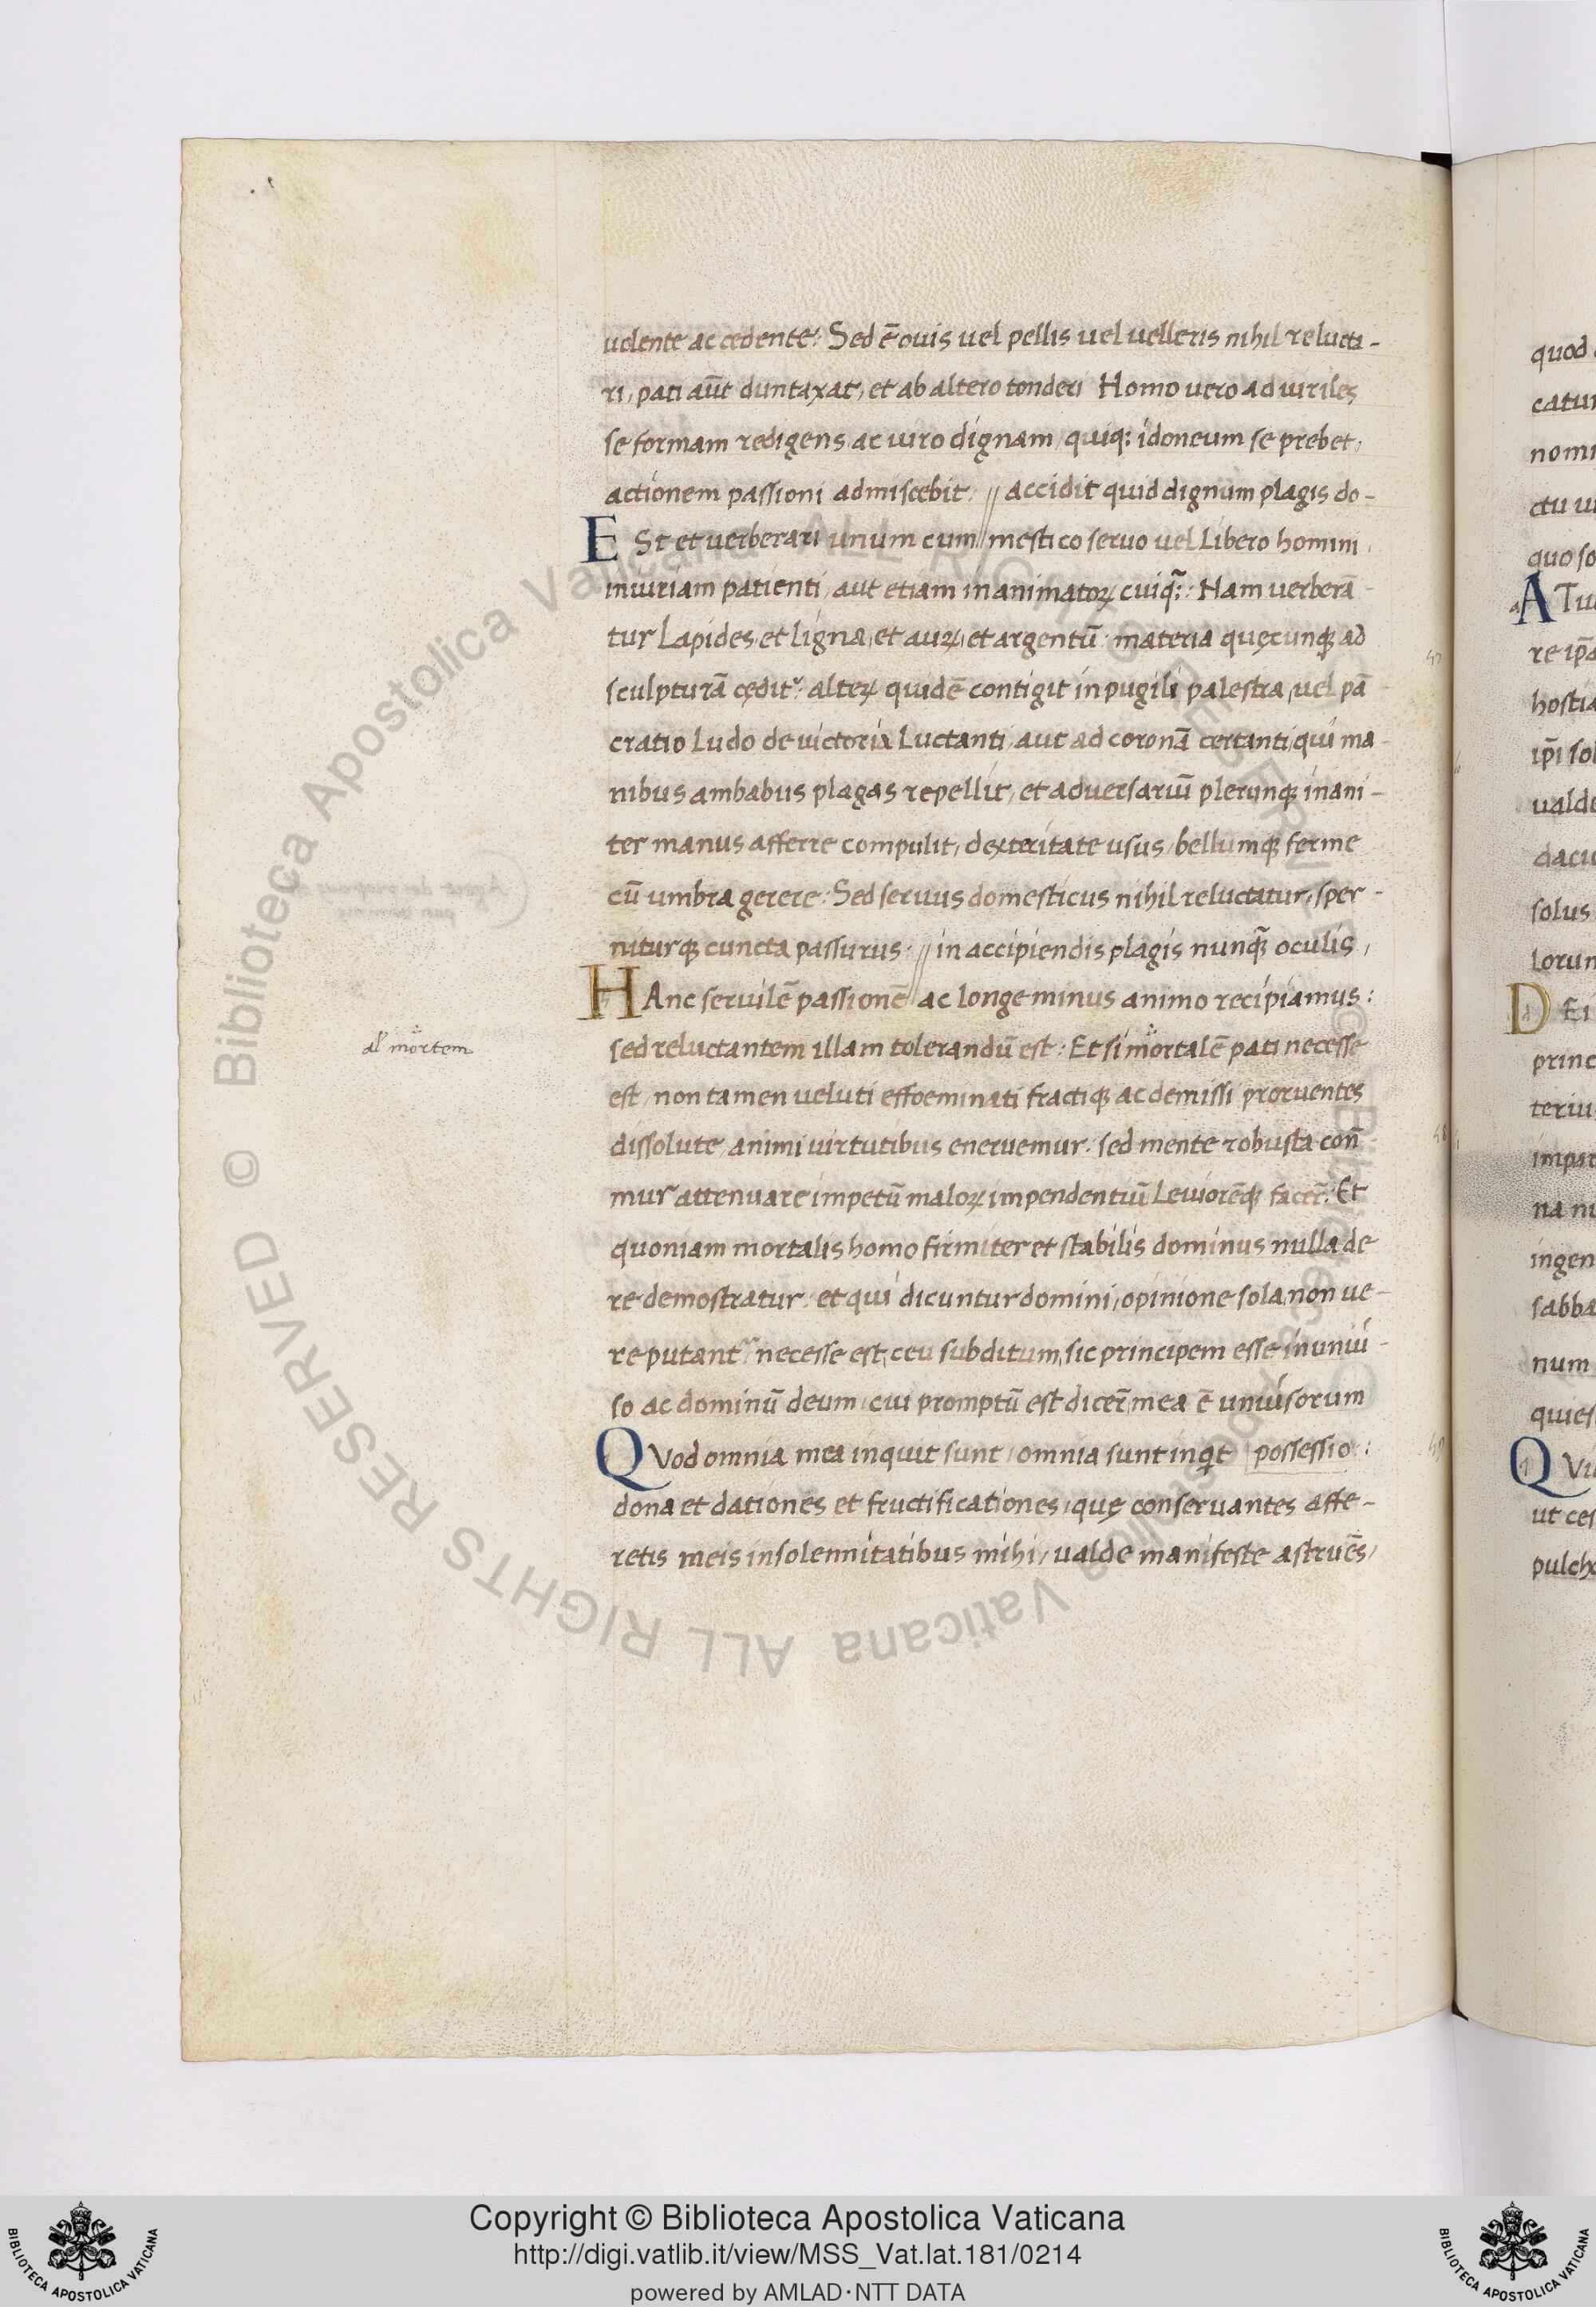 uolente accedente: Sed ē ouis uel pellis uel uelleris nihil relucta-
ri, pati aūt duntaxat, et ab altero tonderi Homo uero ad uiriles
se formam redigens ac uiro dignam quiq: idoneum se prebet,
actionem passioni admiscebit: // accidit quid dignum plagis do-
ESt et uerberari unum cum // mestico seruo uel Libero homini,
iniuriam patienti, aut etiam inanimatoꝝ cuiq̄: Nam uerberā-
tur Lapides, et ligna, et auꝝ, et argentū: materia quęcunqꝫ ad
sculpturā cędit: alteꝝ quidē contigit in pugili palestra, uel pā-
cratio Ludo de uictoria Luctanti, aut ad coronā certanti, qui ma-
nibus ambabus plagas repellit, et aduersariū plerunqꝫ inani-
ter manus afferre compulit, dexteritate usus, bellumqꝫ ferme
cū umbra gerere: Sed seruus domesticus nihil reluctatur, sper-
niturqꝫ cuncta passurus: // in accipiendis plagis nunq̄ oculis,
HAnc seruilē passionē // ac longe minus animo recipiamus:
sed reluctantem illam tolerandū est: Et si mortalē pati necesse
al' mortem
est, non tamen ueluti effoeminati fractiqꝫ ac demissi proruentes
dissolute, animi uirtutibus eneruemur: sed mente robusta con̄-
mur attenuare impetū maloꝝ impendentiū Leuiorēqꝫ facer̄: Et
quoniam mortalis homo firmiter et stabilis dominus nulla de
re demostratur: et qui dicuntur domini, opinione sola, non ue-
re putant necesse est, ceu subditum, sic principem esse in uniū-
so ac dominū deum, cui promptū est dicer̄, mea ē uniūsorum
QVod omnia mea inquit sunt, omnia sunt inqit possessio:
dona et dationes et fructificationes, quę conseruantes affe-
retis meis in solennitatibus mihi, ualde manifeste astruēs,
quod
catur
nomi
ctu
quo so
A Tu
re ip̄
hostia
ip̄i sol
ualde
dacu
solus
lorum
D Ei
princ
teriu
impar
na
ingen
sabba
num
quies
Q Vi
ut ces
pulch
© Biblioteca Apostolica Vaticana ALL RIGHTS RESERVED
Copyright © Biblioteca Apostolica Vaticana
http://digi.vatlib.it/view/MSS_Vat.lat.181/0214
powered by AMLAD·NTT DATA
BIBLIOTECA APOSTOLICA VATICANA
BIBLIOTECA APOSTOLICA VATICANA